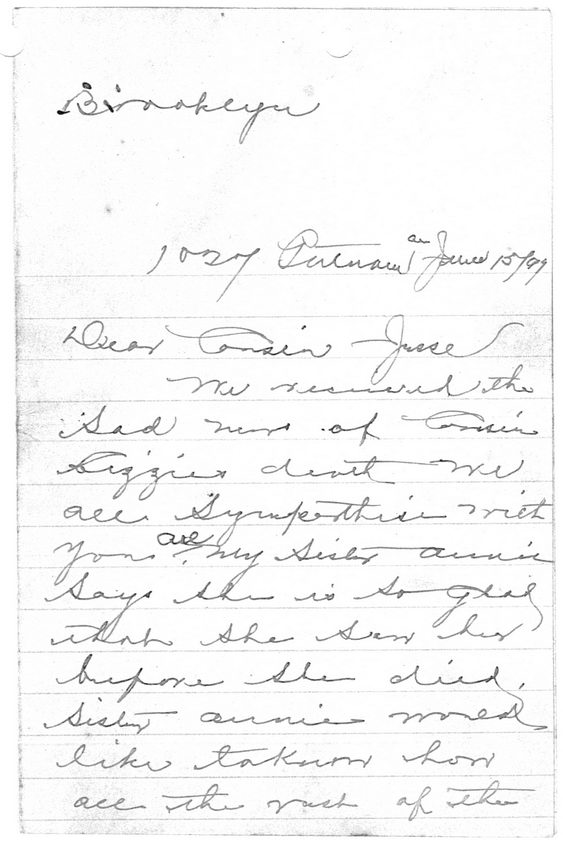 Brooklyn
1027 Putnam av June 15/99
Dear Cousin Jesse
We received the
Sad news of Cousin
Lizzies deat We
all Sympathise with
you all. My Sister annie
Says she is so glad
that she saw her
before she died,
Sister annie would
like to know how
all the rest of the